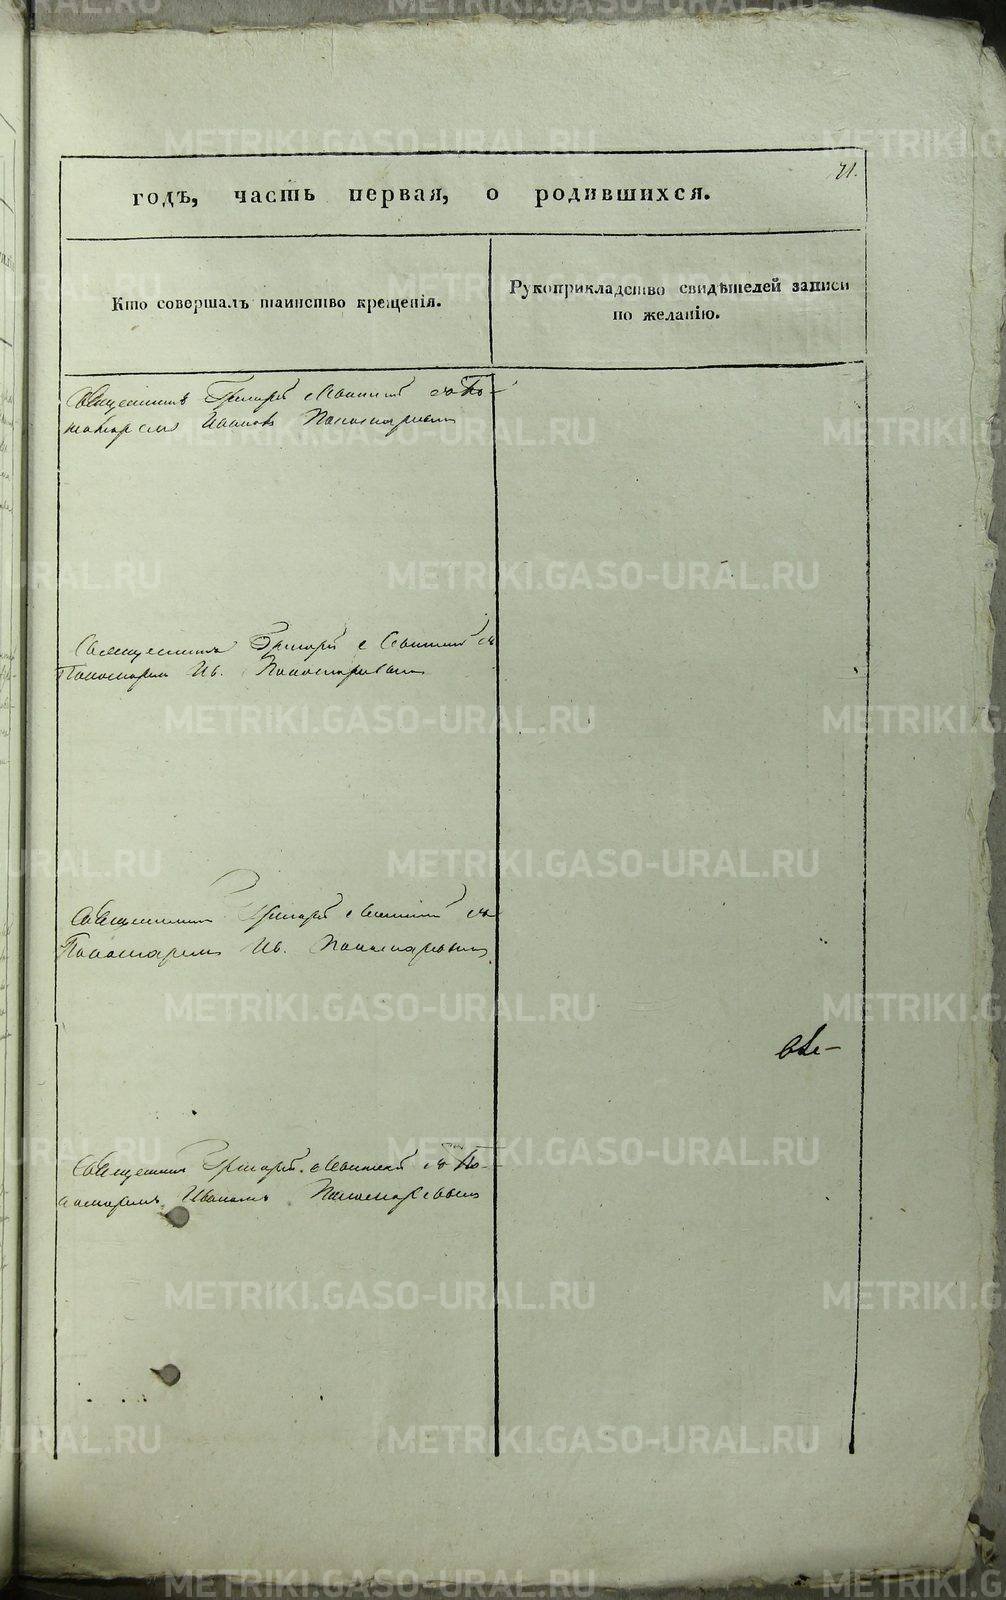 71.
годъ, часть первая, о родившихся.
Кто совершалъ таинство крещенія.
Рукоприкладство свидѣтелей записи
по желанію.
Священникъ Григорій съ По-
номаремъ Пономаревымъ
Священникъ Григорій съ
Пономаремъ Ив. Пономаревымъ
Священникъ Григорій съ
Пономаремъ Ив. Пономаревымъ
Священникъ Григорій съ По-
номаремъ Иваномъ Пономаревымъ
METRIKI.GASO-URAL.RU